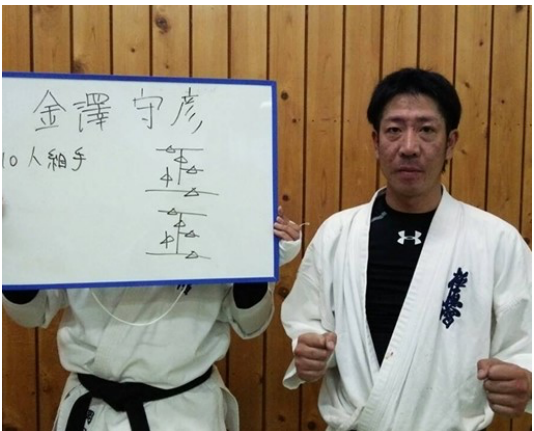 金澤 守彦
10人組手
正
正
極真會